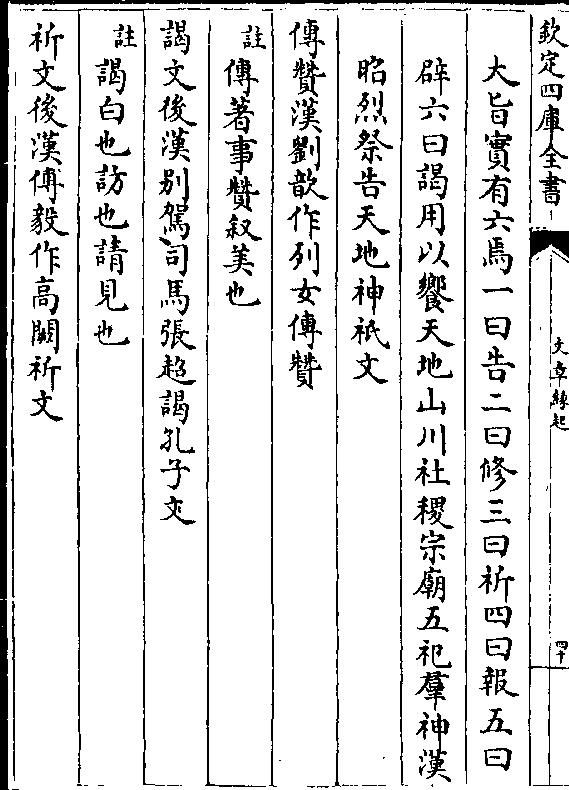 欽定四庫全書
文章緣起
四十
大旨實有六焉一曰告二曰修三曰祈四曰報五曰
辟六曰謁用以饗天地山川社稷宗廟五祀羣神漢
昭烈祭告天地神祇文
傳贊漢劉歆作列女傳贊
註傳著事贊叙美也
謁文後漢别駕司馬張超謁孔子文
註謁白也訪也請見也
祈文後漢傅毅作高闕祈文